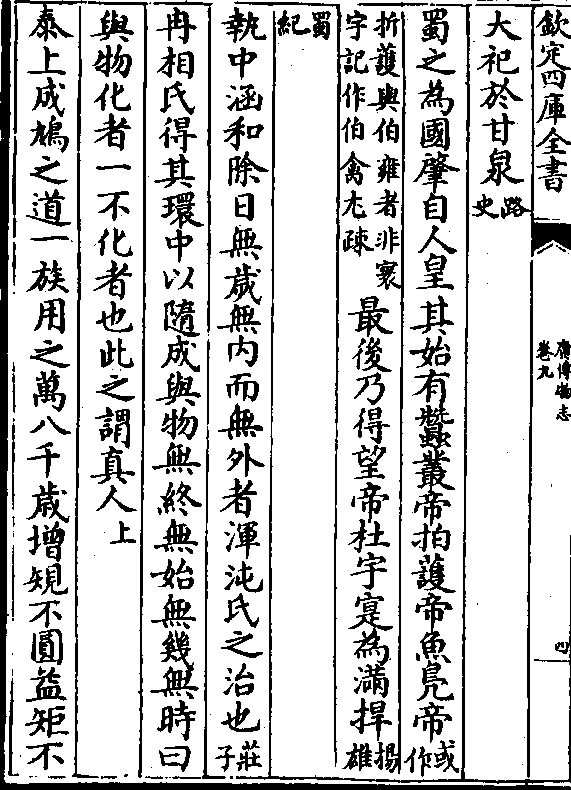 欽定四庫全書
廣博物志
卷九
四
大祀於甘泉路史
蜀之為國肇自人皇其始有蠶叢帝拍護帝魚鳧帝或作
折護與伯雍者非寰宇記作伯禽尤疎最後乃得望帝杜宇寔為滿捍揚雄
蜀紀
執中涵和除日無歲無内而無外者渾沌氏之治也莊子
冉相氏得其環中以隨成與物無終無始無幾無時曰
與物化者一不化者也此之謂真人上
泰上成鳩之道一族用之萬八千歲增規不圓益矩不